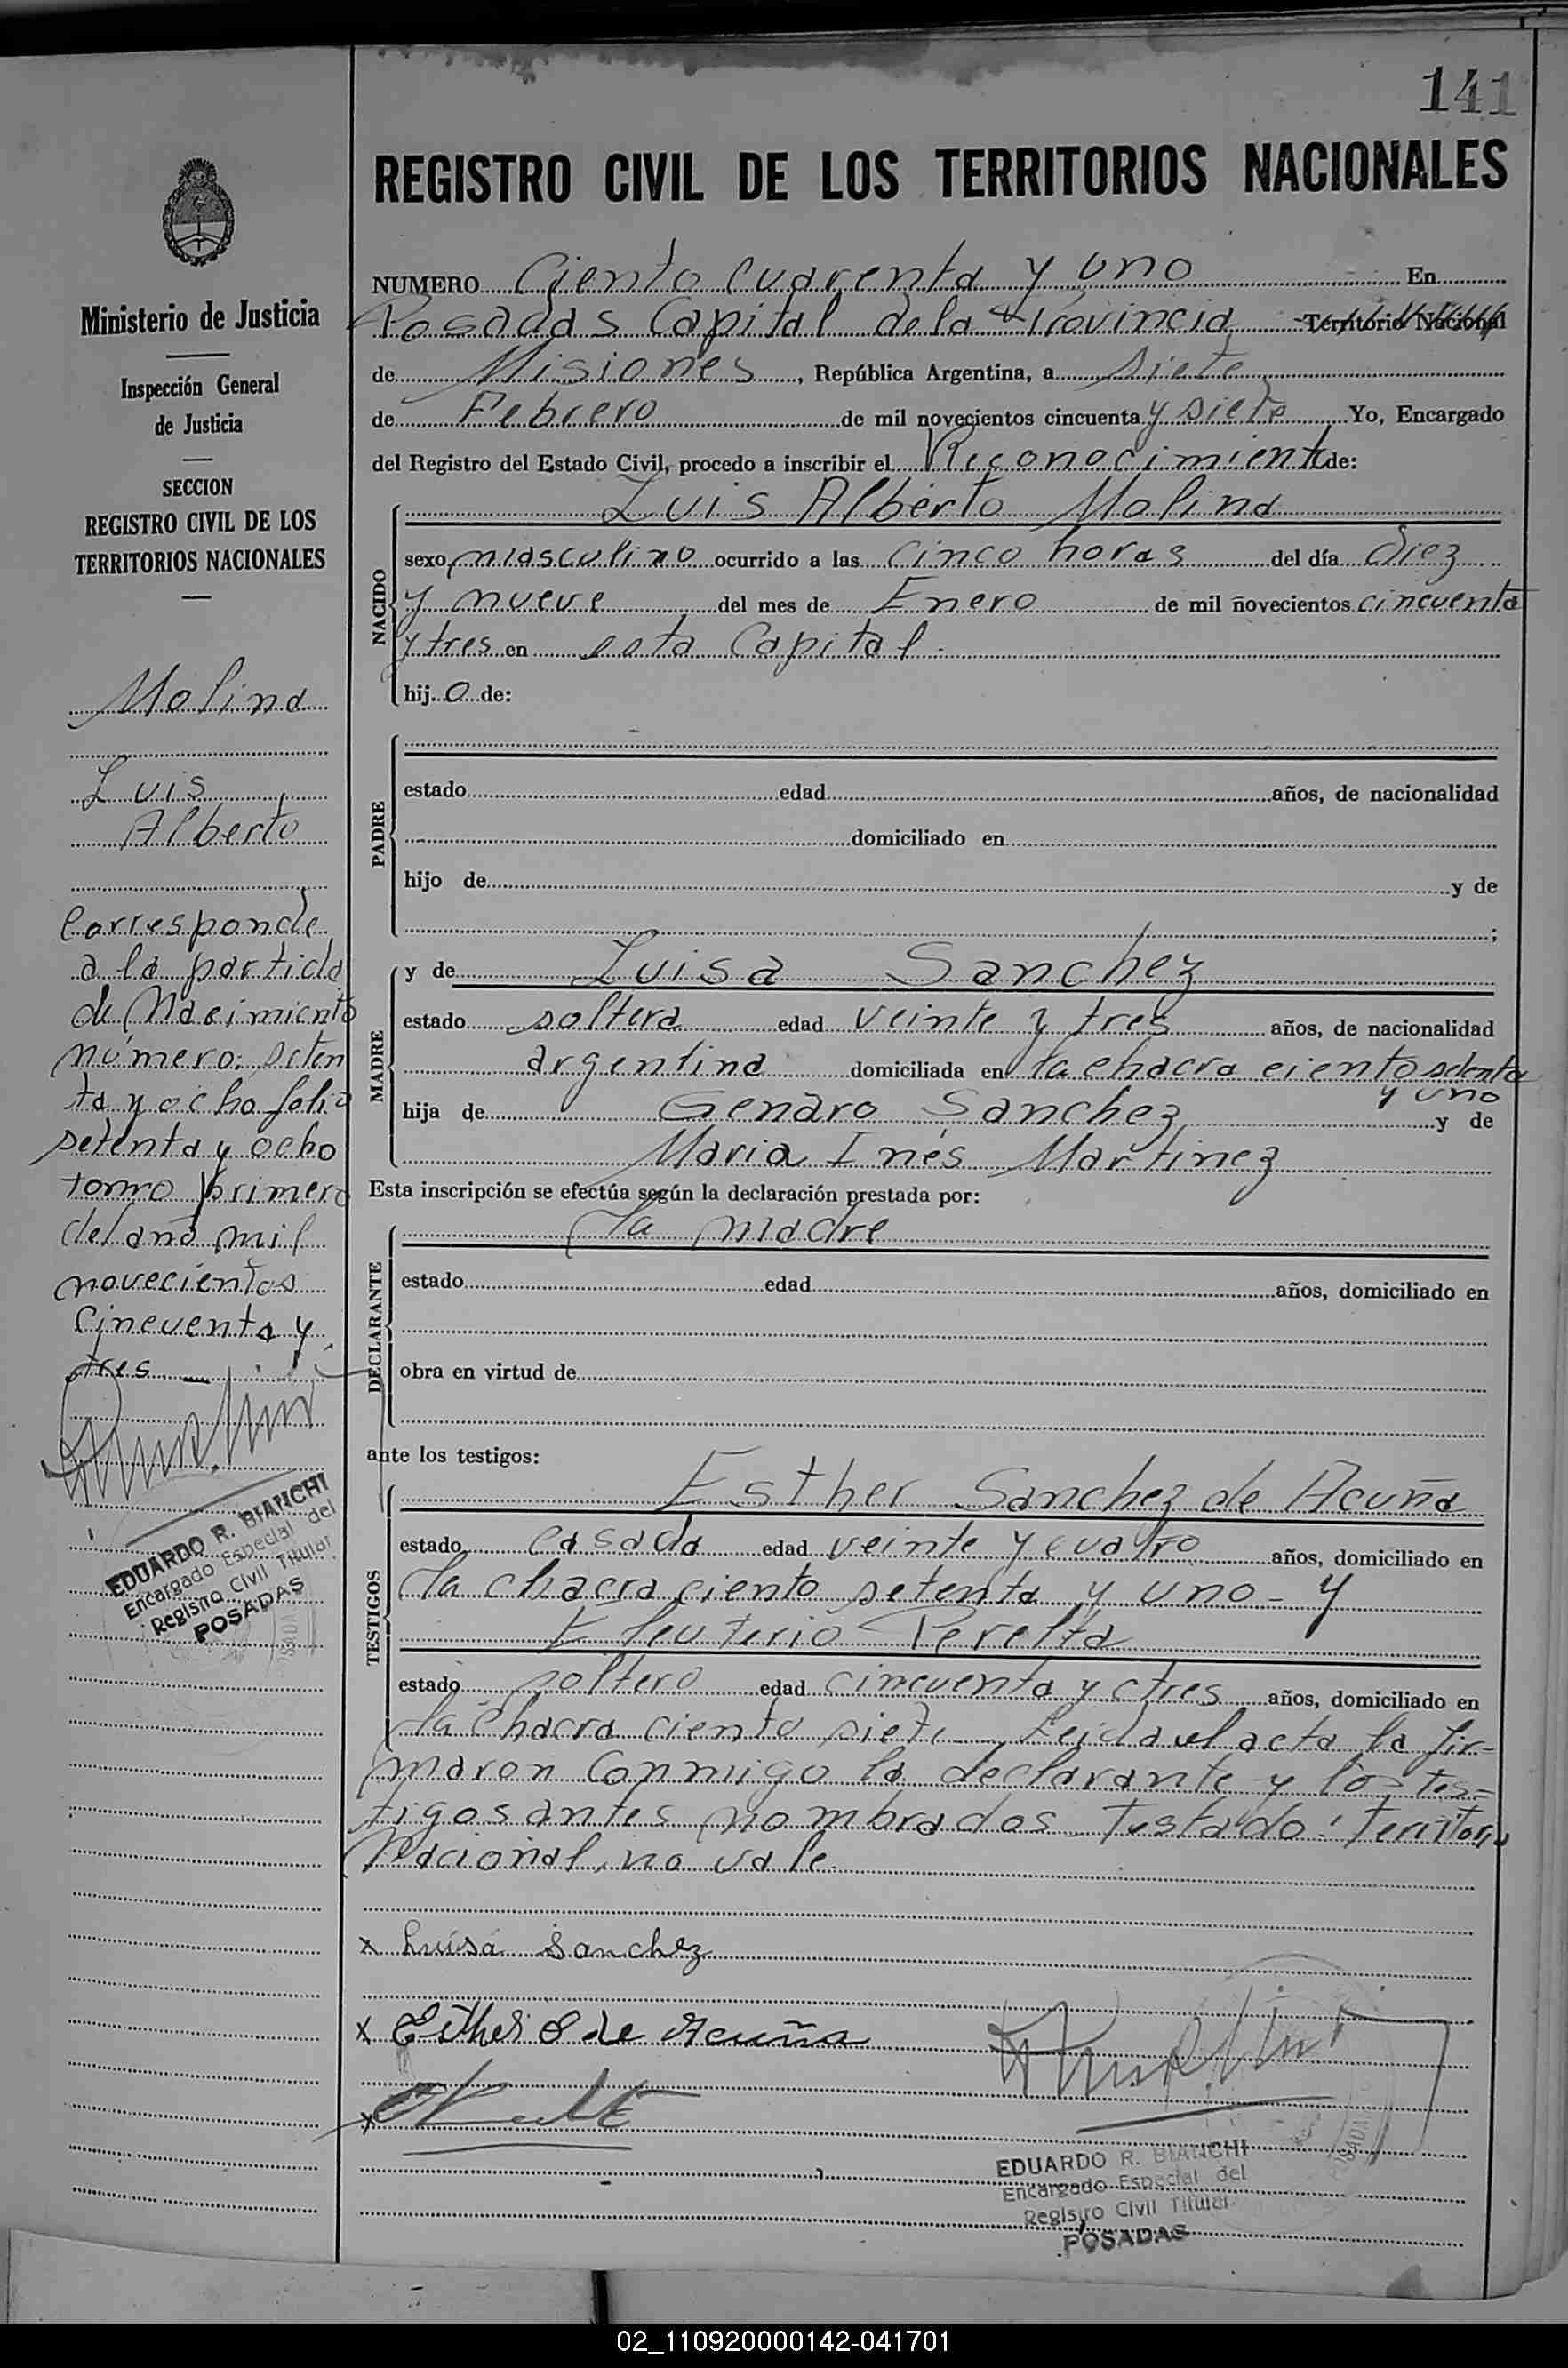 141
REGISTRO CIVIL DE LOS TERRITORIOS NACIONALES
Ministerio de Justicia
Inspección General
de Justicia
SECCION
REGISTRO CIVIL DE LOS
TERRITORIOS NACIONALES
Molina
Luis
Alberto
Corresponde
a la partida
de Nacimiento
número: seten
ta y ocho folio
setenta y ocho
tomo primero
del año mil
novecientos
cincuenta y
tres. —
EDUARDO R. BIANCHI
Encargado Especial del
Registro Civil Titular
POSADAS
NUMERO Ciento cuarenta y uno En
Posadas Capital de la Provincia Territorio Nacional
de Misiones, República Argentina, a siete
de Febrero de mil novecientos cincuenta y siete Yo, Encargado
del Registro del Estado Civil, procedo a inscribir el Reconocimiento de:
NACIDO
Luis Alberto Molina
sexo masculino ocurrido a las cinco horas del día diez
y nueve del mes de Enero de mil novecientos cincuenta
y tres en esta Capital.
hijo de:
PADRE
estado edad años, de nacionalidad
domiciliado en
hijo de y de
;
MADRE
y de Luisa Sanchez
estado soltera edad veinte y tres años, de nacionalidad
argentina domiciliada en la chacra ciento setenta
y uno
hija de Genaro Sanchez y de
Maria Inés Martinez
Esta inscripción se efectúa según la declaración prestada por:
DECLARANTE
la madre
estado edad años, domiciliado en
obra en virtud de
ante los testigos:
TESTIGOS
Esther Sanchez de Acuña
estado casada edad veinte y cuatro años, domiciliado en
la chacra ciento setenta y uno - y
Eleuterio Perelta
estado soltero edad cincuenta y tres años, domiciliado en
la chacra ciento siete. Leida el acta la fir-
maron conmigo la declarante y los tes-
tigos antes nombrados. Testado: Territorio
Nacional, no vale.
x Luisa Sanchez
x Esther S de Acuña
x
EDUARDO R. BIANCHI
Encargado Especial del
Registro Civil Titular
POSADAS
02_110920000142-041701